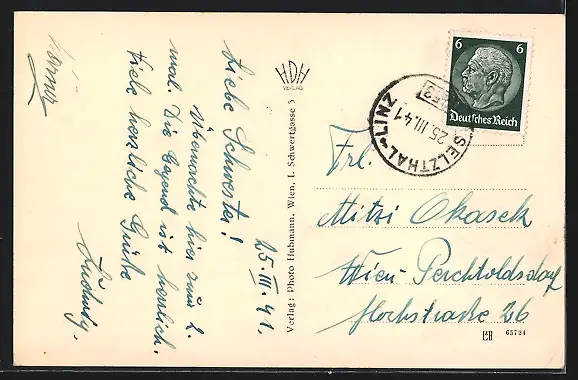 25. III. 41.
Liebe Schwester!
Übernachte hier zum 2.
mal. Die Gegend ist herrlich.
Viele herzliche Grüße
Ludwig.
HDH
VERLAG
Verlag: Photo Hubmann, Wien, I. Schwertgasse 3
6 6
Deutsches Reich
SELZTHAL-LINZ
25. III. 41
Frl.
Mitzi Okasek
Wien-Perchtoldsdorf
Hochstraße 26
65724